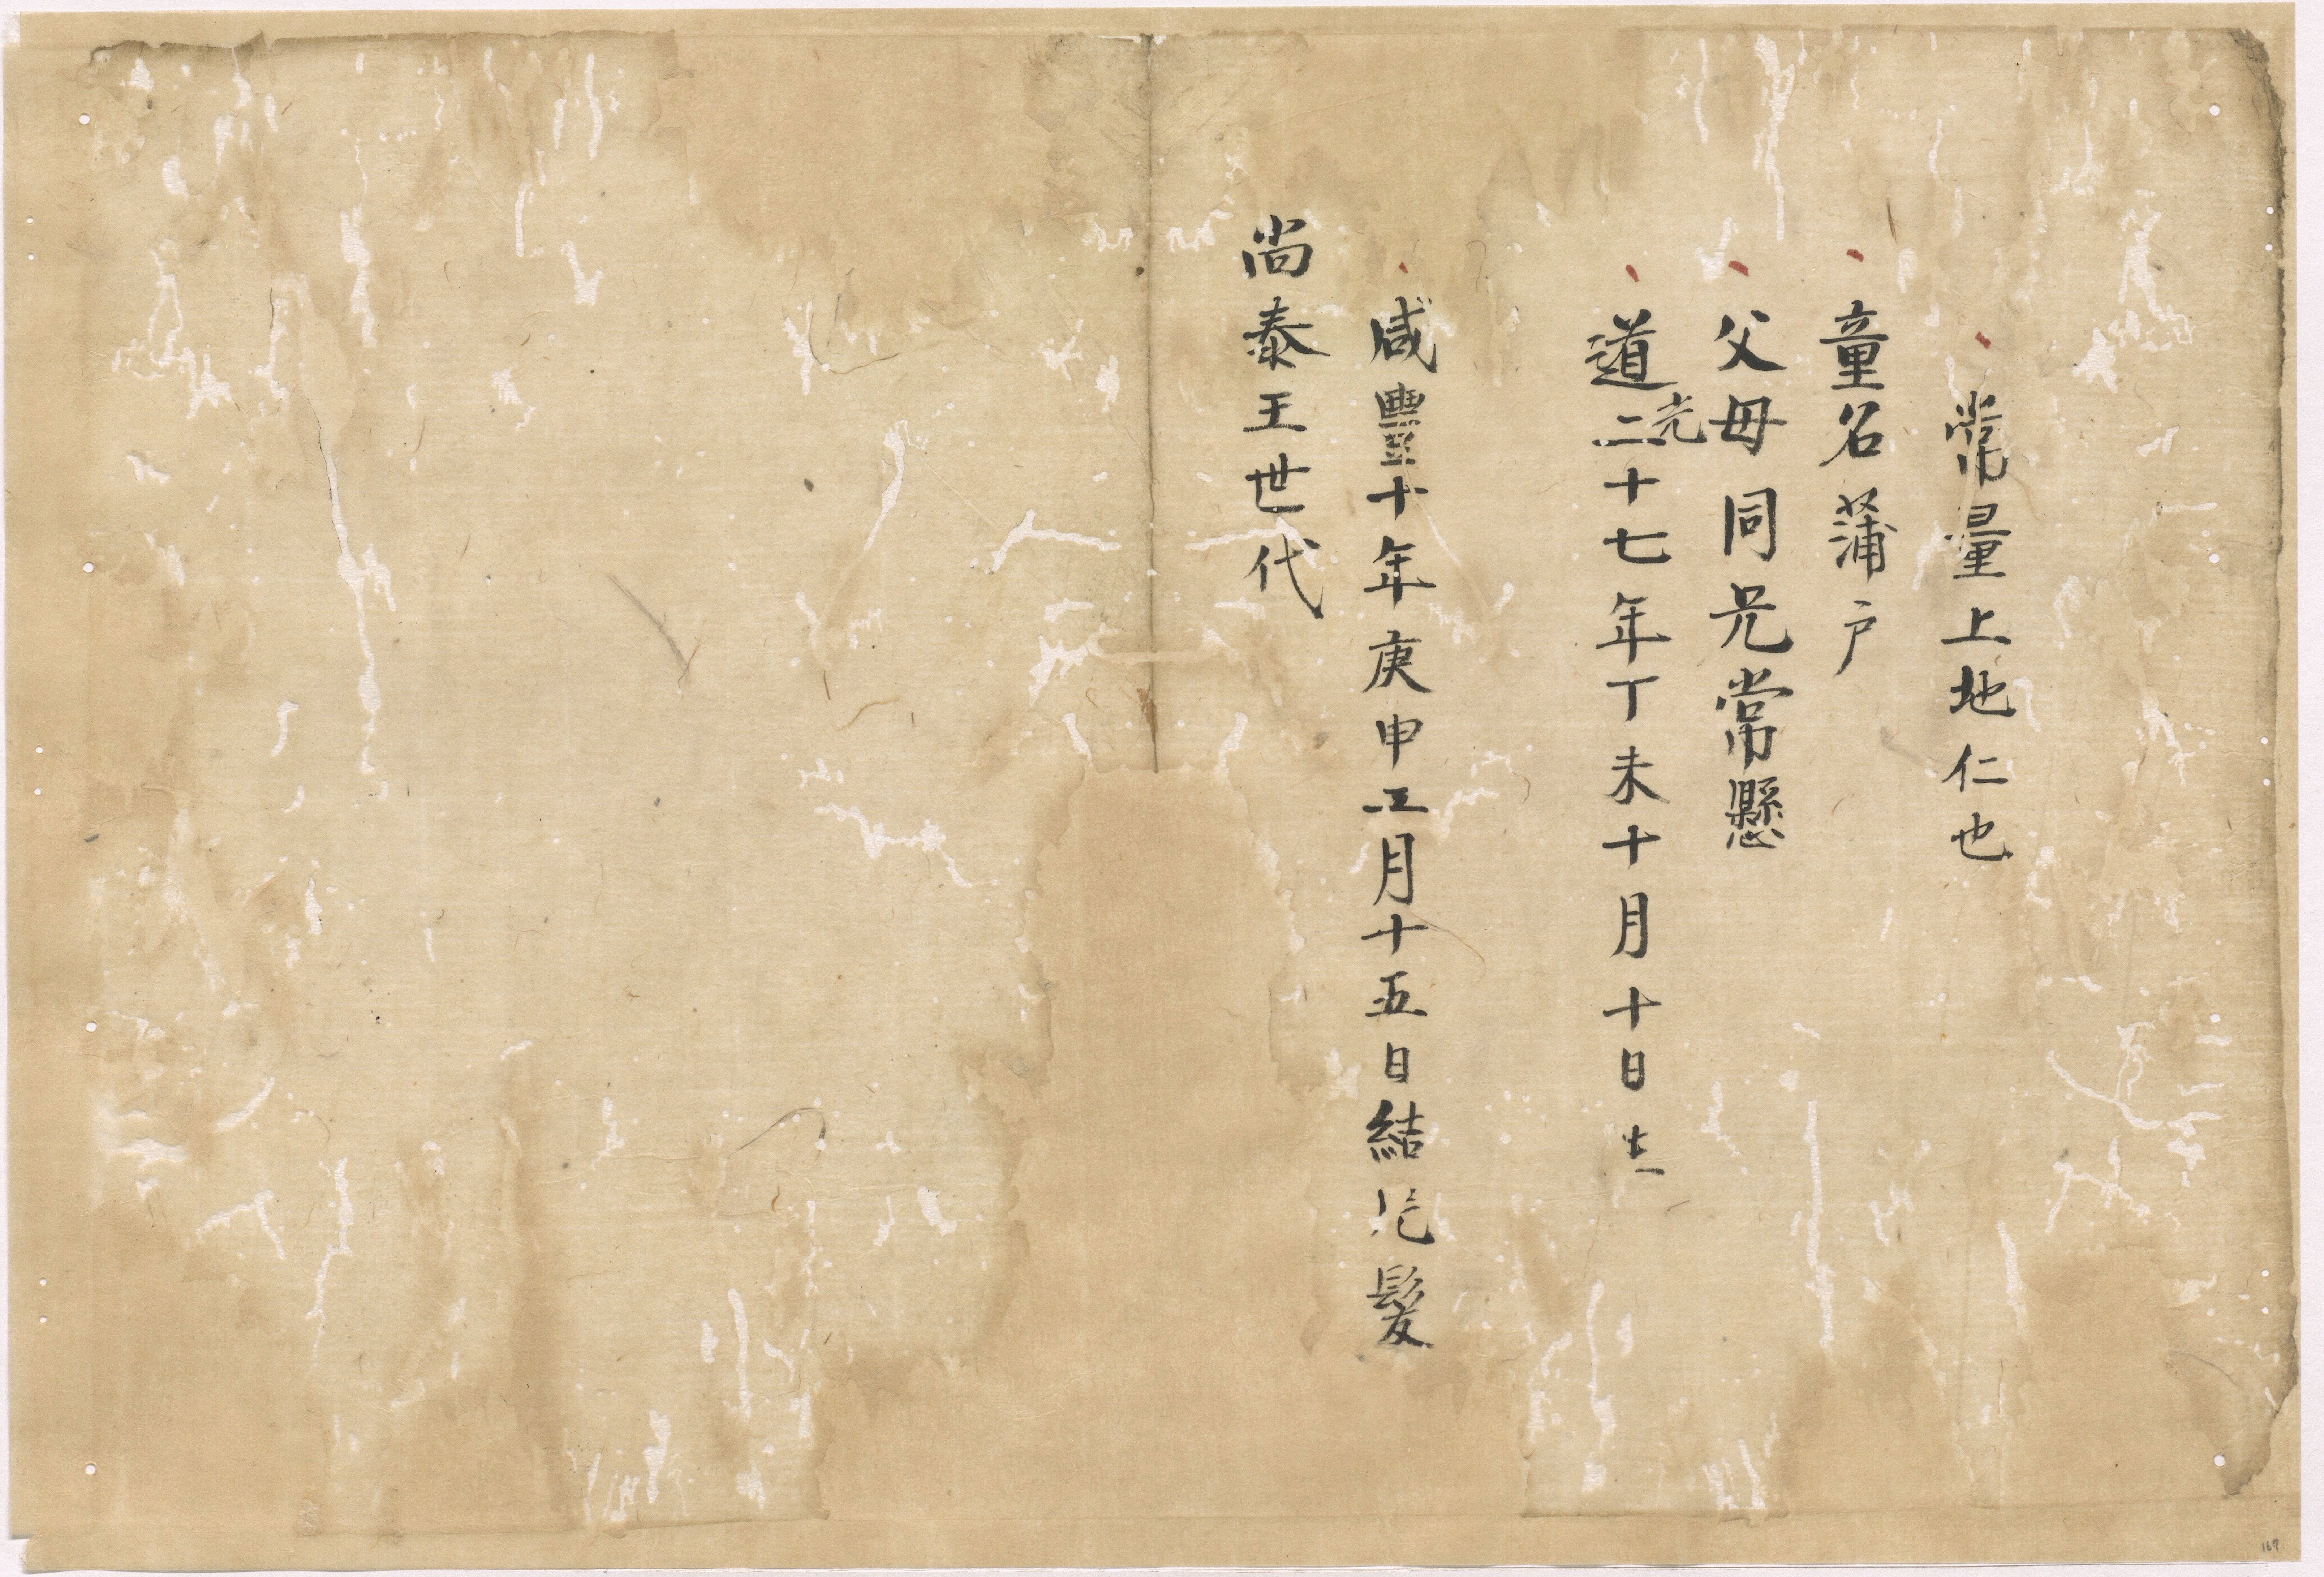 常量上地仁也
童名蒲戸
父母同兄常懸
道光二十七年丁未十月十日生
咸豐十年庚申正月十五日結片髪
尚泰王世代
167